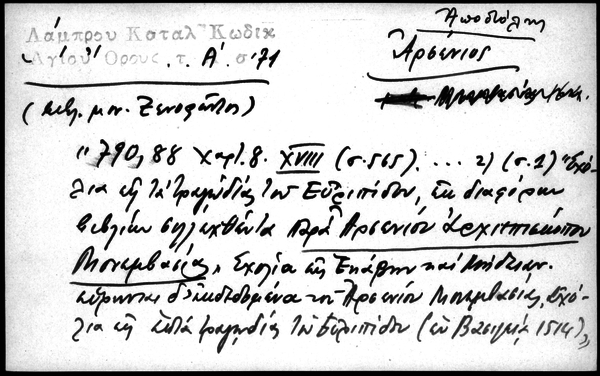 Ἀποστόλης
Λάμπρου Καταλ. Κωδίκ
Ἁγίου Ὄρους. τ. Α΄. σ. 71
Ἀρσένιος
(βιβλ. μον. Ξενοφῶντος)
" 790, 88 χαρτ. 8. XVIII (σ. 565). ... 2) (σ. 1) "Σχό-
λια εἰς τὰς τραγῳδίας τοῦ Εὐριπίδου, ἐκ διαφόρων
βιβλίων συλλεχθέντα παρὰ Ἀρσενίου ἀρχιεπισκόπου
Μονεμβασίας" Σχόλια εἰς Ἑκάβην καὶ
ἐκδεδομένα τοῦ Ἀρσενίου Μονεμβασίας, Σχό-
λια εἰς ἑπτὰ τραγῳδίας τοῦ Εὐριπίδου (ἐν 1514)"